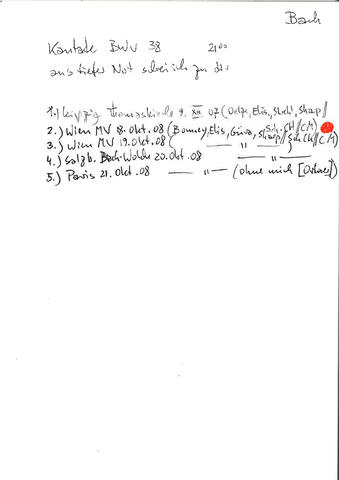 Bach
Kantate BWV 38 21,00
aus tiefer Not schrei ich zu dir
1.) Leipzig Thomaskirche 9. XII 07 (Oelze, Elis, Sharp //
2.) Wien MV 18. Okt. 08 (Bonney, Elis, Güra, Sharp // Sch. CH // CM)
3.) Wien MV 19. Okt. 08 — " — Sch CH // CM)
4.) Salzb. Bach-Woche 20. Okt. 08 — " —
5.) Paris 21. Okt. 08 — " — (ohne mich